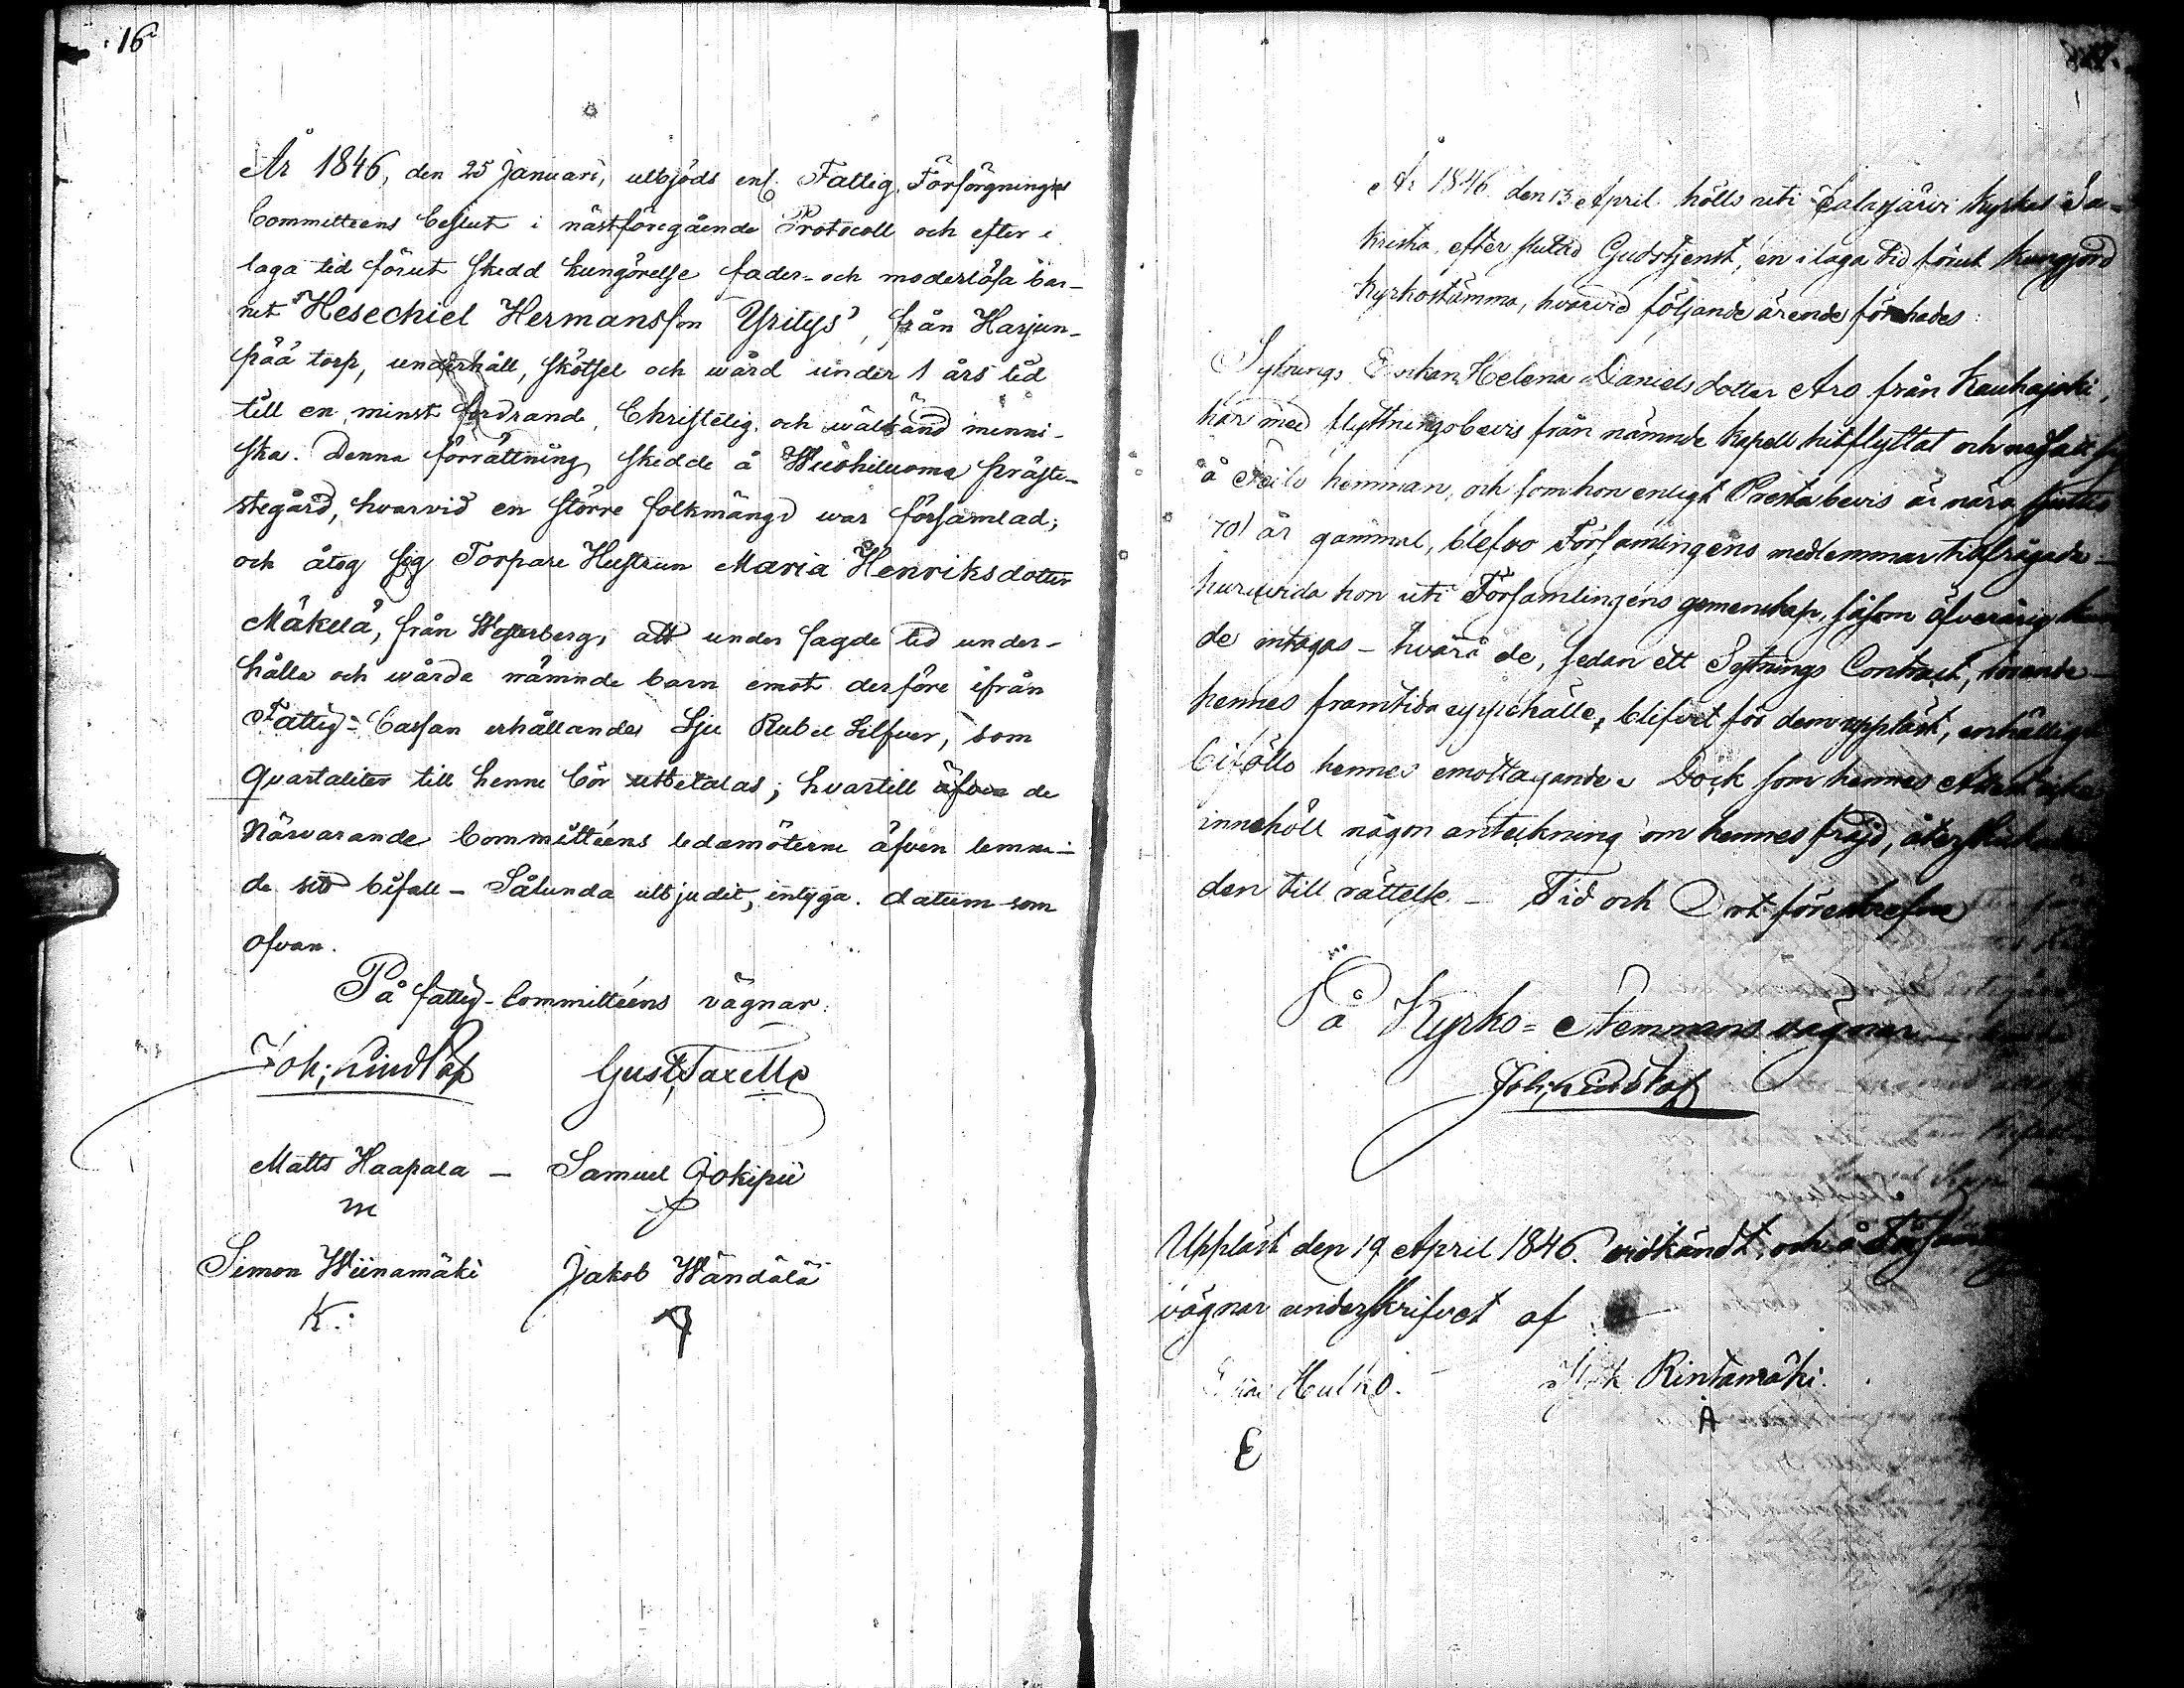 16
År 1846, den 25 Januari, utbjöds enl. Fattig. Försörgnings
Committeens beslut i nästföregående Protocoll och efter i
laga tid förut skedd kungörelse fader- och moderlösa bar-
net Hesechiel Hermansson Yritys, från Harjun-
pää torp, underhåll, skötsel och wård under 1 års tid
till en minst fordrande, Christelig och wälkänd menni-
ska. Denna förrättning skedde å Wuohiluoma präste-
stegård, hvarvid en större folkmängd war församlad;
och åtog sig Torpare Hustrun Maria Henriksdotter
Mäkelä, från Westerberg, att under sagde tid under-
hålla och wårda nämnde barn emot derföre ifrån
Fattig-Cassan erhållandes Sju Rubel Silfver, som
Quartaliter till henne bör utbetalas; hvartill de
Närvarande Committéens ledamöterne äfven lemna-
de sitt bifall - Sålunda utbjudit, intyga. datum som
ofvan.
På fattig-Committéens vägnar:
Joh; Lindlöf Gust; Taxelle
Matts Haapala - Samuel Jokipii
m
Simon Wiinamäki Jakob Wändälä
K.
År 1846 den 13 April hölls uti Jalasjärvi Kyrkas Sa-
kristia, efter slutad Gudstjenst, en i laga tid förut kungjord
Kyrkostämma, hvarvid följande ärende förehades:
Sytnings Enkan Helena Danielsdotter Aro från Kauhajoki,
har med flyttningsbevis från nämnde Kapell hitflyttat och nedsatt
å hemman, och som hon enligt Prestabevis är nära sjuttio
70) år gammal, blefvo Församlingens medlemmar tillfrågade
huruvida hon uti Församlingens gemenskap, såsom öfverårig
de intagas - hvarå de, sedan ett Sytnings Contract, rörande
hennes framtida uppehälle, blifvet för dem uppläst, enhälligt
biföllo hennes emottagande. Dock som hennes Attest icke
innehöll någon anteckning om hennes frejd,
den till rättelse. - Tid och Ort föreskrefne
På Kyrko-Stemmans vägnar
Joh; Lindlöf
Uppläst den 19 April 1846. vidkändt, och å
vägnar underskrifvet af
Hulko. Rintamäki.
E A